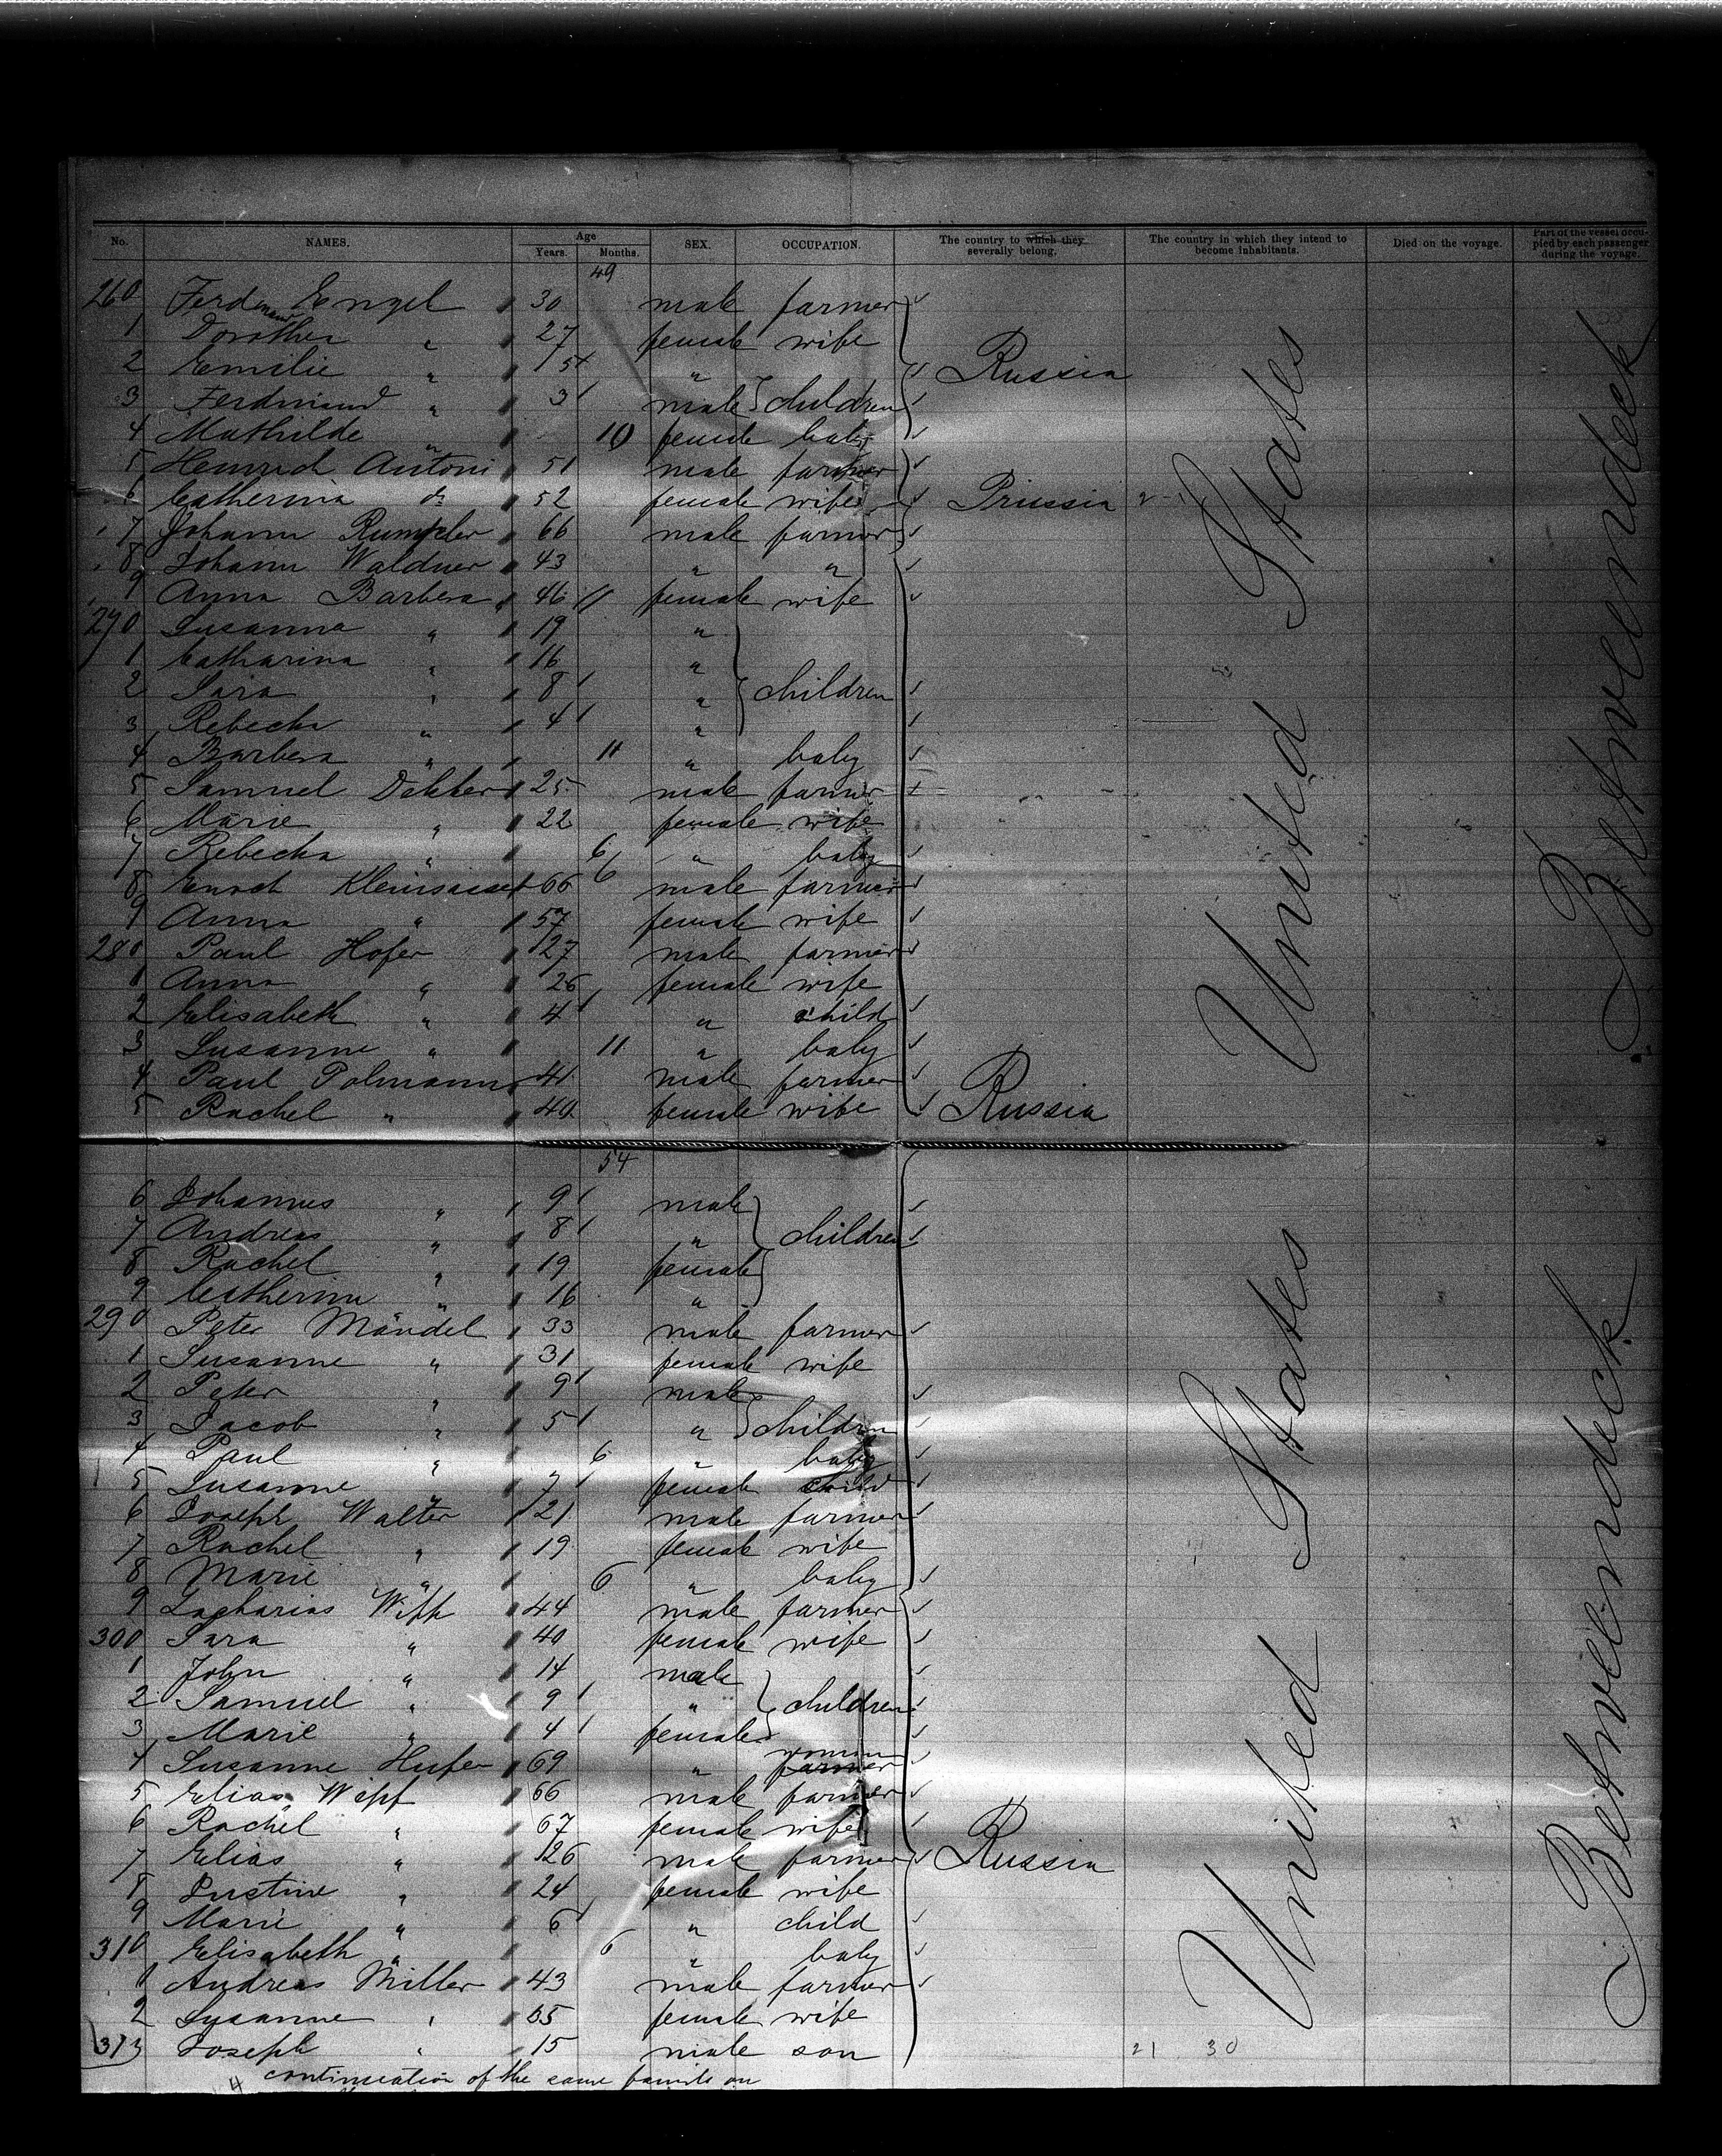 No. NAMES. Age Years. Months. SEX. OCCUPATION. The country to which they severally belong. The country in which they intend to become inhabitants. Died on the voyage. Part of the vessel occupied by each passenger during the voyage.
49
260 Ferdinand Engel 30 male farmer
1 Dorothea " 27 female wife
2 Emilie " 5 " Russia
3 Ferdinand " 3 male children
4 Mathilde " 10 female baby
5 Heinrich Antoni 51 male farmer
6 Catherina do 52 female wife Prussia
7 Johann Rumpler 66 male farmer
8 Johann Waldner 43 " "
9 Anna Barbera " 46 female wife
270 Susanna " 19 "
1 Catharina " 16 "
2 Sara " 8 " children
3 Rebecka " 4 "
4 Barbera " 11 " baby
5 Samuel Dekker 25 male farmer
6 Marie " 22 female wife
7 Rebecka " 6 " baby
8 Enoch Kleinsasser 66 6 male farmer
9 Anna " 57 female wife
280 Paul Hofer 27 male farmer
1 Anna " 26 female wife
2 Elisabeth " 4 " child
3 Susanne " 11 " baby
4 Paul Polmann 41 male farmer
5 Rachel " 40 female wife Russia
United States
Betweendeck
54
6 Johannes " 9 male
7 Andreas " 8 " children
8 Rachel " 19 female
9 Catherina " 16 "
290 Peter Mändel 33 male farmer
1 Susanne " 31 female wife
2 Peter " 9 male
3 Jacob " 5 " children
4 Paul " 6 " baby
5 Susanne " 7 female child
6 Joseph Walter 21 male farmer
7 Rachel " 19 female wife
8 Marie " 6 " baby
9 Zacharias Wipf 44 male farmer
300 Sara " 40 female wife
1 John " 14 male
2 Samuel " 9 " children
3 Marie " 4 female
4 Susanne Hufer 69 " woman farmer
5 Elias Wipf 66 male farmer
6 Rachel " 67 female wife
7 Elias " 26 male farmer Russia
8 Justine " 24 female wife
9 Marie " 6 " child
310 Elisabeth " 6 " baby
1 Andreas Miller 43 male farmer
2 Susanne " 35 female wife
313 Joseph " 15 male son 21 30
United States
Betweendeck
4 continuation of the same family on